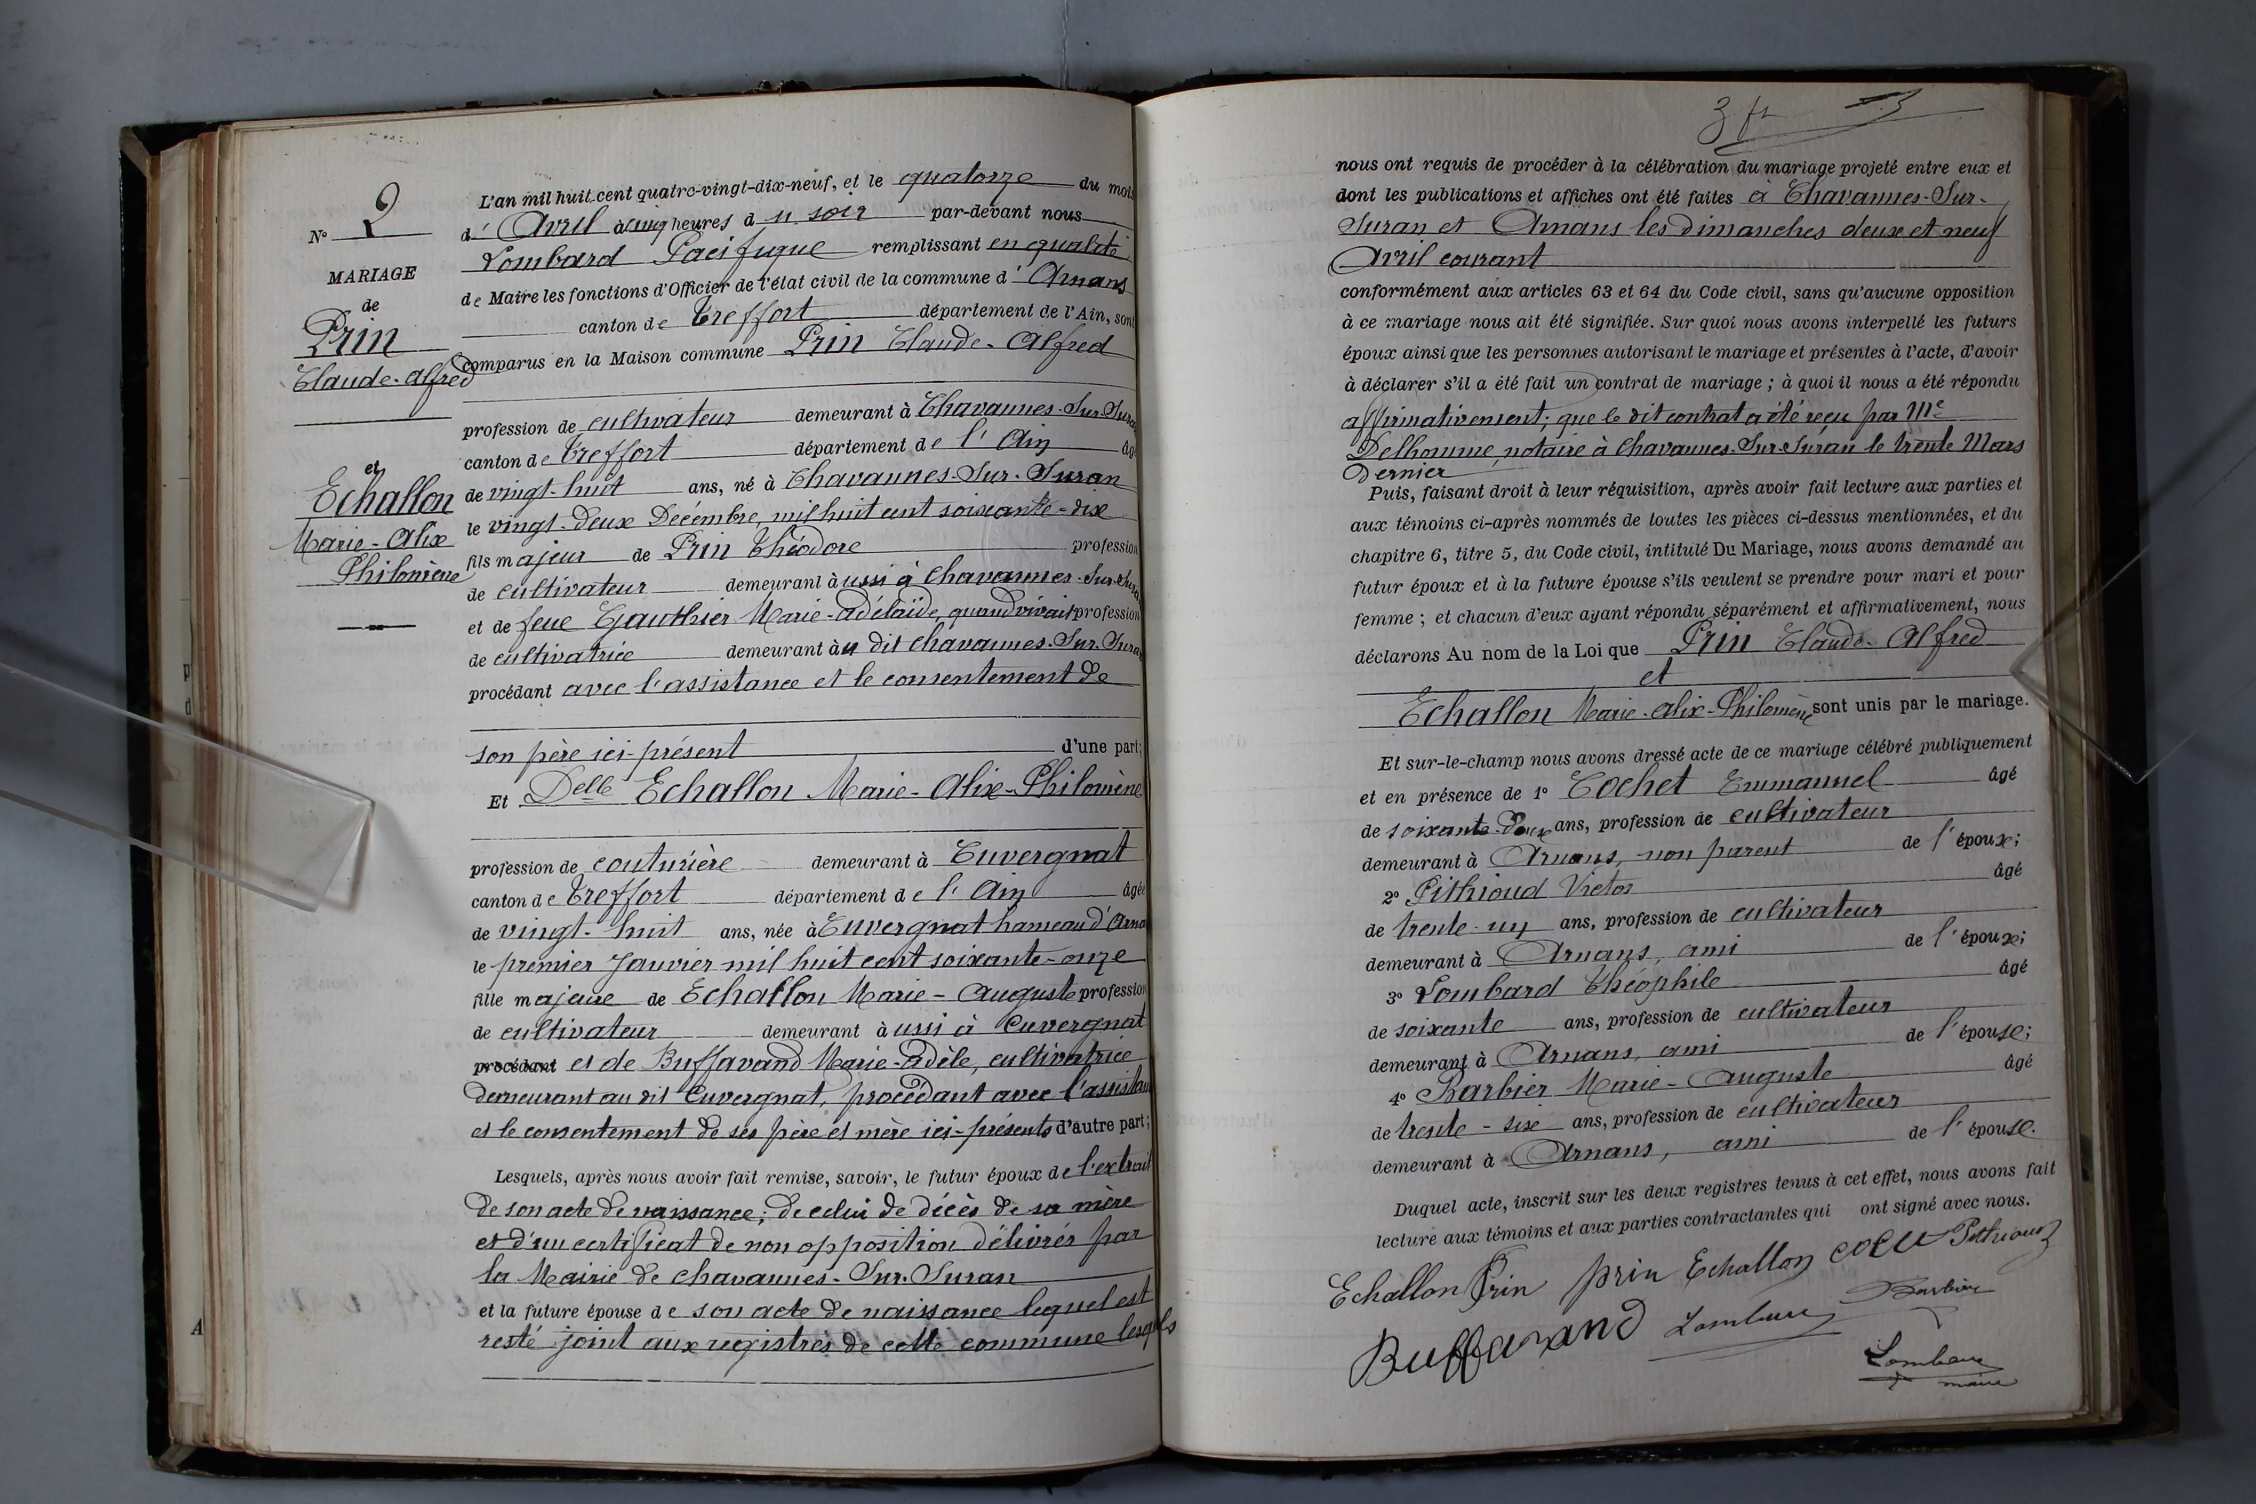 N° 2
MARIAGE
de
Prin
Claude-Alfred
et
Echallon
Marie-Alix
Philomène
L'an mil huit cent quatre-vingt-dix-neuf, et le quatorze du mois
d'Avril à cinq heures du soir par-devant nous
Lombard Pacifique remplissant en qualité
de Maire les fonctions d'Officier de l'état civil de la commune d'Arnans
canton de Treffort département de l'Ain, sont
comparus en la Maison commune Prin Claude-Alfred
profession de cultivateur demeurant à Chavannes-Sur-Suran
canton de Treffort département de l'Ain âgé
de vingt-huit ans, né à Chavannes-Sur-Suran
le vingt-deux Décembre mil huit cent soixante-dix
fils majeur de Prin Théodore profession
de cultivateur demeurant aussi à Chavannes-Sur-Suran
et de feue Gauthier Marie-Adélaïde, quand vivait profession
de cultivatrice demeurant au dit Chavannes-Sur-Suran
procédant avec l'assistance et le consentement de
son père ici-présent d'une part;
Et Delle Echallon Marie-Alix-Philomène
profession de couturière demeurant à Cuvergnat
canton de Treffort département de l'Ain âgée
de vingt-huit ans, née à Cuvergnat hameau d'Arnans
le premier Janvier mil huit cent soixante-onze
fille majeure de Echallon Marie-Auguste profession
de cultivateur demeurant aussi à Cuvergnat
procédant et de Buffavand Marie-Adèle, cultivatrice
demeurant au dit Cuvergnat, procédant avec l'assistance
et le consentement de ses père et mère ici-présents d'autre part;
Lesquels, après nous avoir fait remise, savoir, le futur époux de l'extrait
de son acte de naissance; de celui de décès de sa mère
et d'un certificat de non opposition délivrés par
la Mairie de Chavannes-Sur-Suran
et la future épouse de son acte de naissance lequel est
resté joint aux registres de cette commune lesquels
3
nous ont requis de procéder à la célébration du mariage projeté entre eux et
dont les publications et affiches ont été faites à Chavannes-Sur-
Suran et Arnans les dimanches deux et neuf
Avril courant
conformément aux articles 63 et 64 du Code civil, sans qu'aucune opposition
à ce mariage nous ait été signifiée. Sur quoi nous avons interpellé les futurs
époux ainsi que les personnes autorisant le mariage et présentes à l'acte, d'avoir
à déclarer s'il a été fait un contrat de mariage; à quoi il nous a été répondu
affirmativement; que le dit contrat a été reçu par Me
Delhomme, notaire à Chavannes-Sur-Suran le trente Mars
Dernier
Puis, faisant droit à leur réquisition, après avoir fait lecture aux parties et
aux témoins ci-après nommés de toutes les pièces ci-dessus mentionnées, et du
chapitre 6, titre 5, du Code civil, intitulé Du Mariage, nous avons demandé au
futur époux et à la future épouse s'ils veulent se prendre pour mari et pour
femme; et chacun d'eux ayant répondu séparément et affirmativement, nous
déclarons Au nom de la Loi que Prin Claude-Alfred
et
Echallon Marie-Alix-Philomène sont unis par le mariage.
Et sur-le-champ nous avons dressé acte de ce mariage célébré publiquement
et en présence de 1° Cochet Emmanuel âgé
de soixante-deux ans, profession de cultivateur
demeurant à Arnans, non parent de l'époux;
2° Pithioud Victor âgé
de trente-un ans, profession de cultivateur
demeurant à Arnans, ami de l'époux;
3° Lombard Théophile âgé
de soixante ans, profession de cultivateur
demeurant à Arnans, ami de l'épouse;
4° Barbier Marie-Auguste âgé
de trente-six ans, profession de cultivateur
demeurant à Arnans, ami de l'épouse.
Duquel acte, inscrit sur les deux registres tenus à cet effet, nous avons fait
lecture aux témoins et aux parties contractantes qui ont signé avec nous.
Echallon Prin prin Echallon Pithioud
Buffavand Lombard Barbier
Lombard
maire